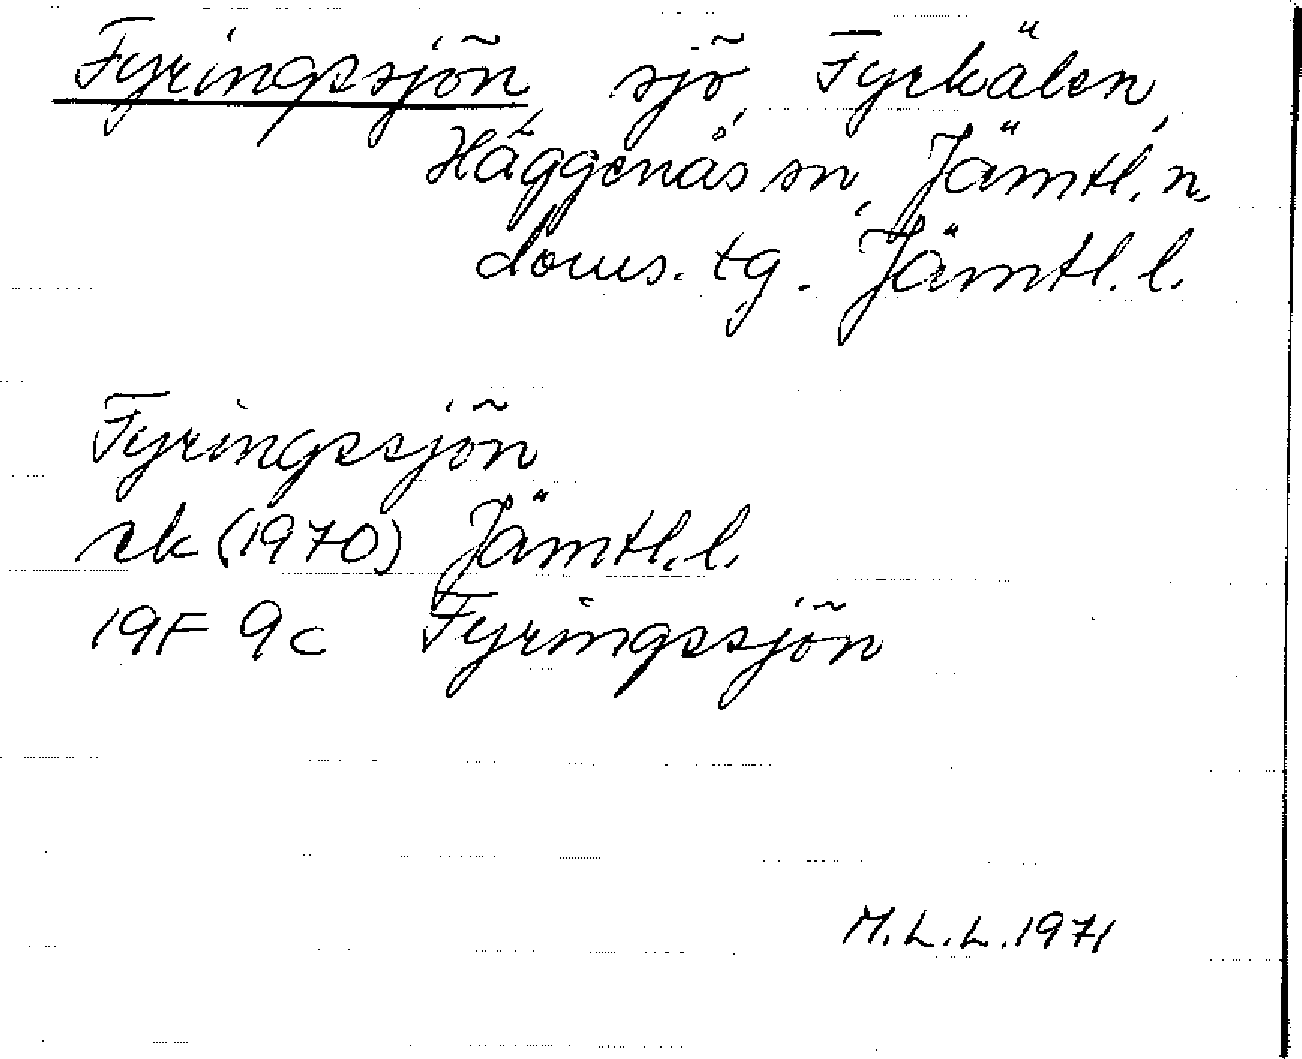 Fyringssjön, sjö, Fyrkälen,
Häggenås sn, Jämtl. n.
doms. tg. Jämtl. l.
Fyringssjön
rk (1970) Jämtl. l.
19F 9c Fyringssjön
M.L.L. 1971